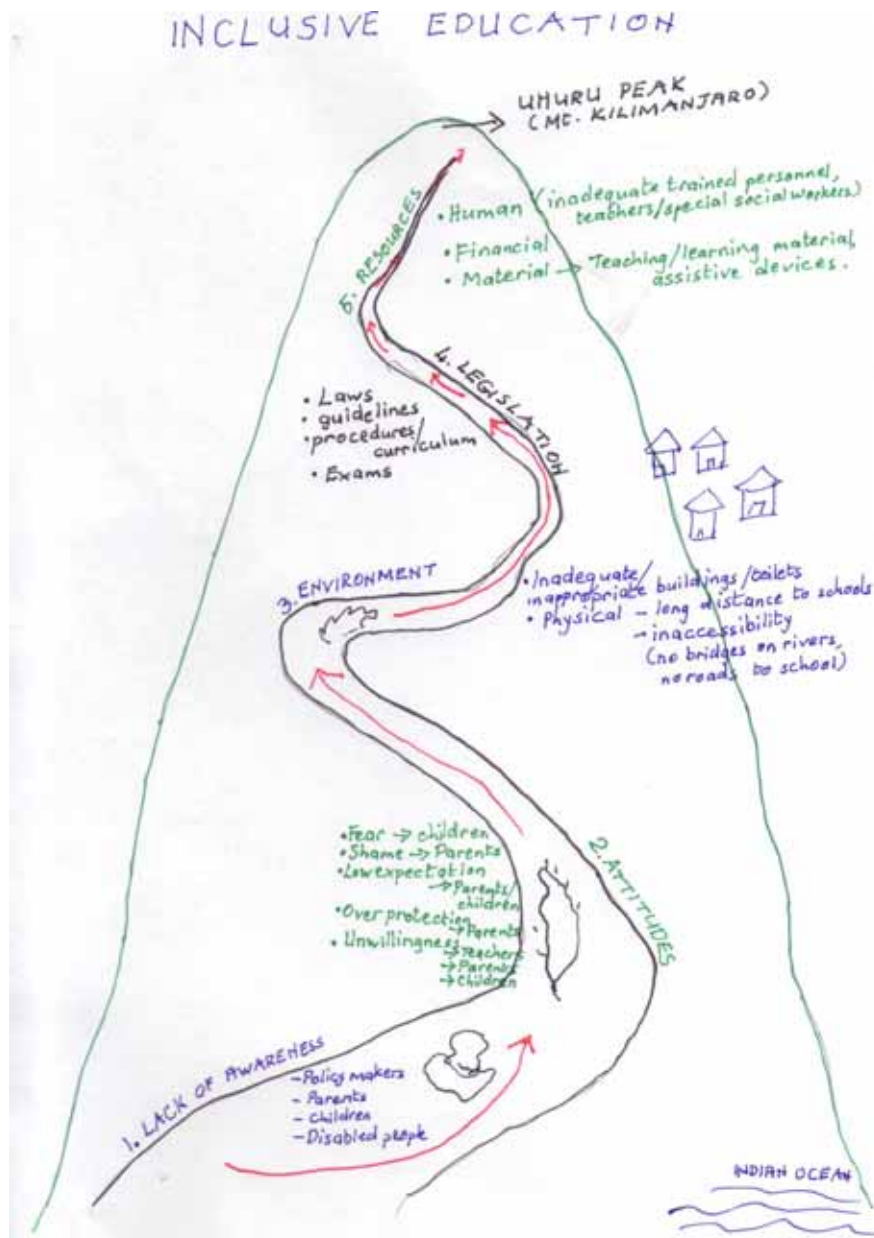 INCLUSIVE EDUCATION
UHURU PEAK
(Mt. KILIMANJARO)
5. RESOURCES
• Human (inadequate trained personnel,
teachers/special social workers)
• Financial
• Material → Teaching/learning material,
assistive devices.
4. LEGISLATION
• Laws
• guidelines
• procedures/
curriculum
• Exams
3. ENVIRONMENT
• Inadequate/
inappropriate buildings/toilets
• Physical – long distance to schools
→ inaccessibility
(no bridges on rivers,
no roads to school)
2. ATTITUDES
• Fear → children
• Shame → Parents
• Low expectation
→ Parents/
children
• Over protection
→ Parents
• Unwillingness
→ Teachers
→ Parents
→ Children
1. LACK OF AWARENESS
– Policy makers
– Parents
– Children
– Disabled people
INDIAN OCEAN